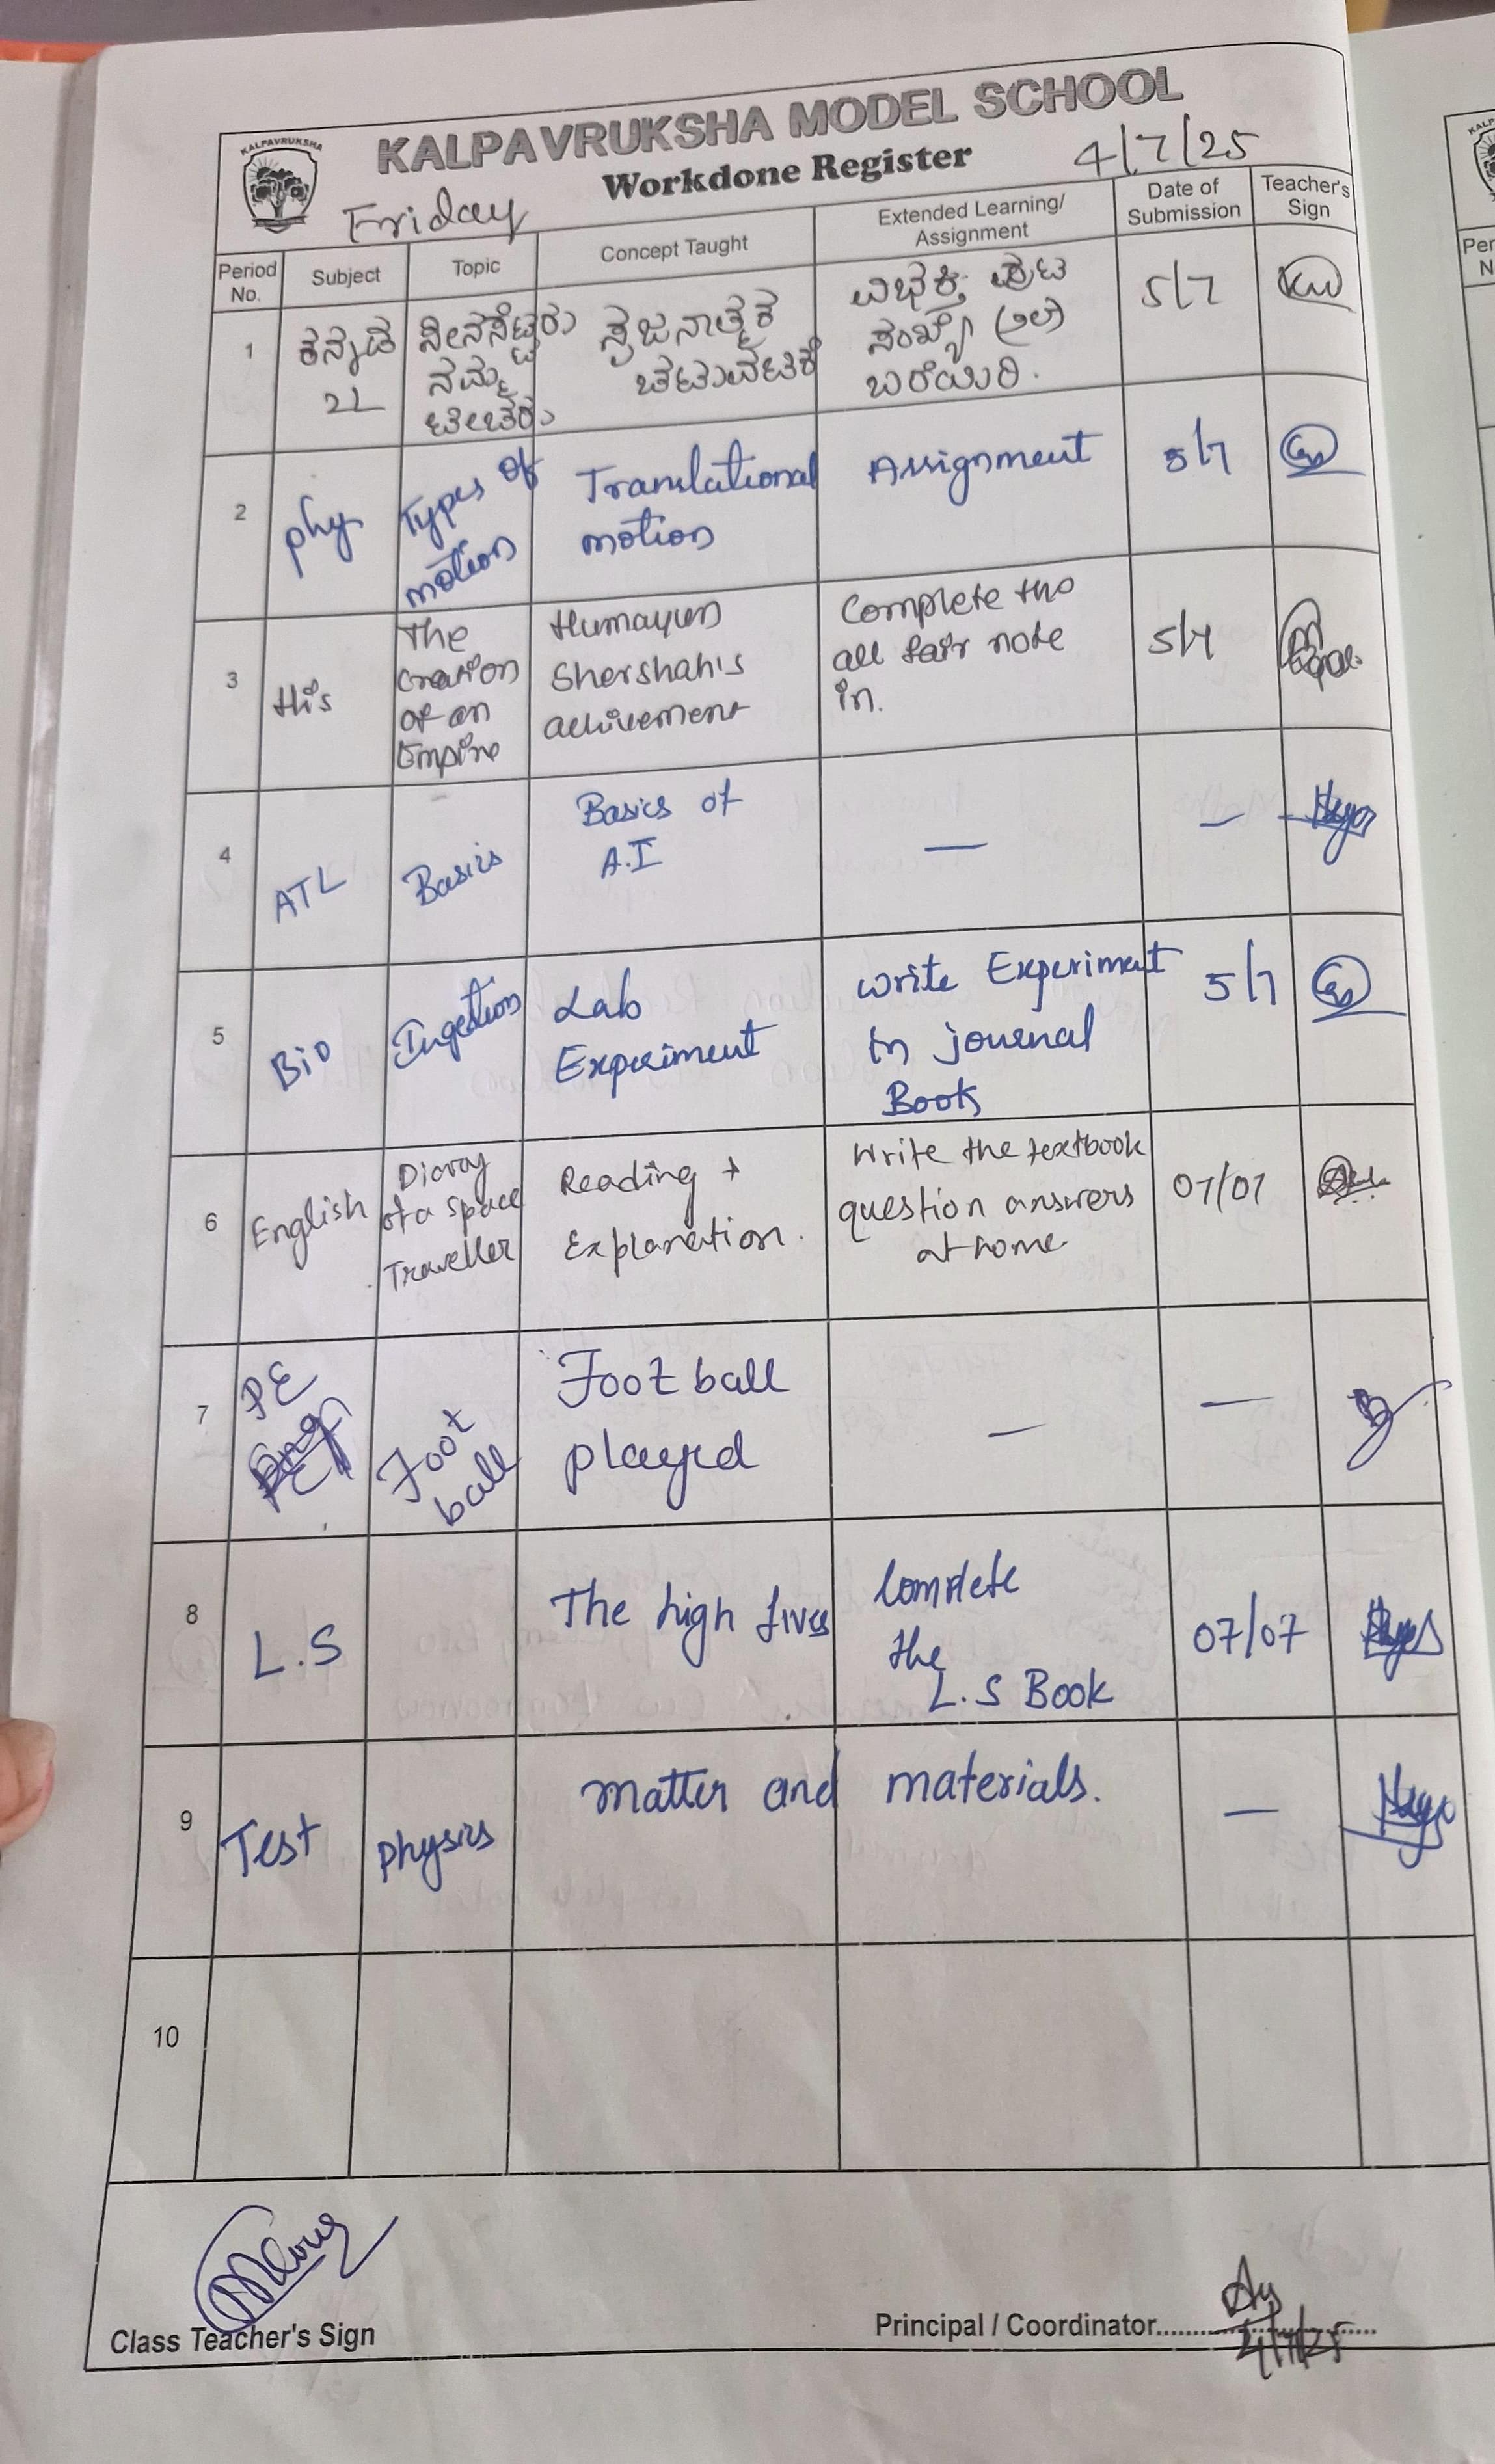 KALPAVRUKSHA
KALPAVRUKSHA MODEL SCHOOL
Workdone Register
4/7/25
Friday
Period No.
Subject
Topic
Concept Taught
Extended Learning/
Assignment
Date of
Submission
Teacher's
Sign
1
ಕನ್ನಡ
2L
ಸೀನಸೆಟ್ಟರು
ನಮ್ಮ
ಟೀಚರು
ಸೃಜನಾತ್ಮಕ
ಚಟುವಟಿಕೆ
ವಿಭಕ್ತಿ ಪುಟ
ಸಂಖ್ಯೆ
ಬರೆಯಿರಿ.
5/7
2
phy
Types of
motion
Translational
motion
Assignment
5/7
3
His
The
creation
of an
Empire
Humayun
Shershah's
achivement
Complete the
all fair note
in.
5/7
4
ATL
Basics
Basics of
A.I
—
—
5
Bio
Ingestion
Lab
Experiment
Write Experiment
in journal
Book
5/7
6
English
Diaray
of a space
Traveller
Reading +
Explanation.
Write the textbook
question answers
at home
07/07
7
PE
Foot
ball
Foot ball
played
—
—
8
L.S
The high fives
Complete
the
L.S Book
07/07
9
Test
Physics
matter and materials.
—
10
Class Teacher's Sign
Principal / Coordinator
4/7/25